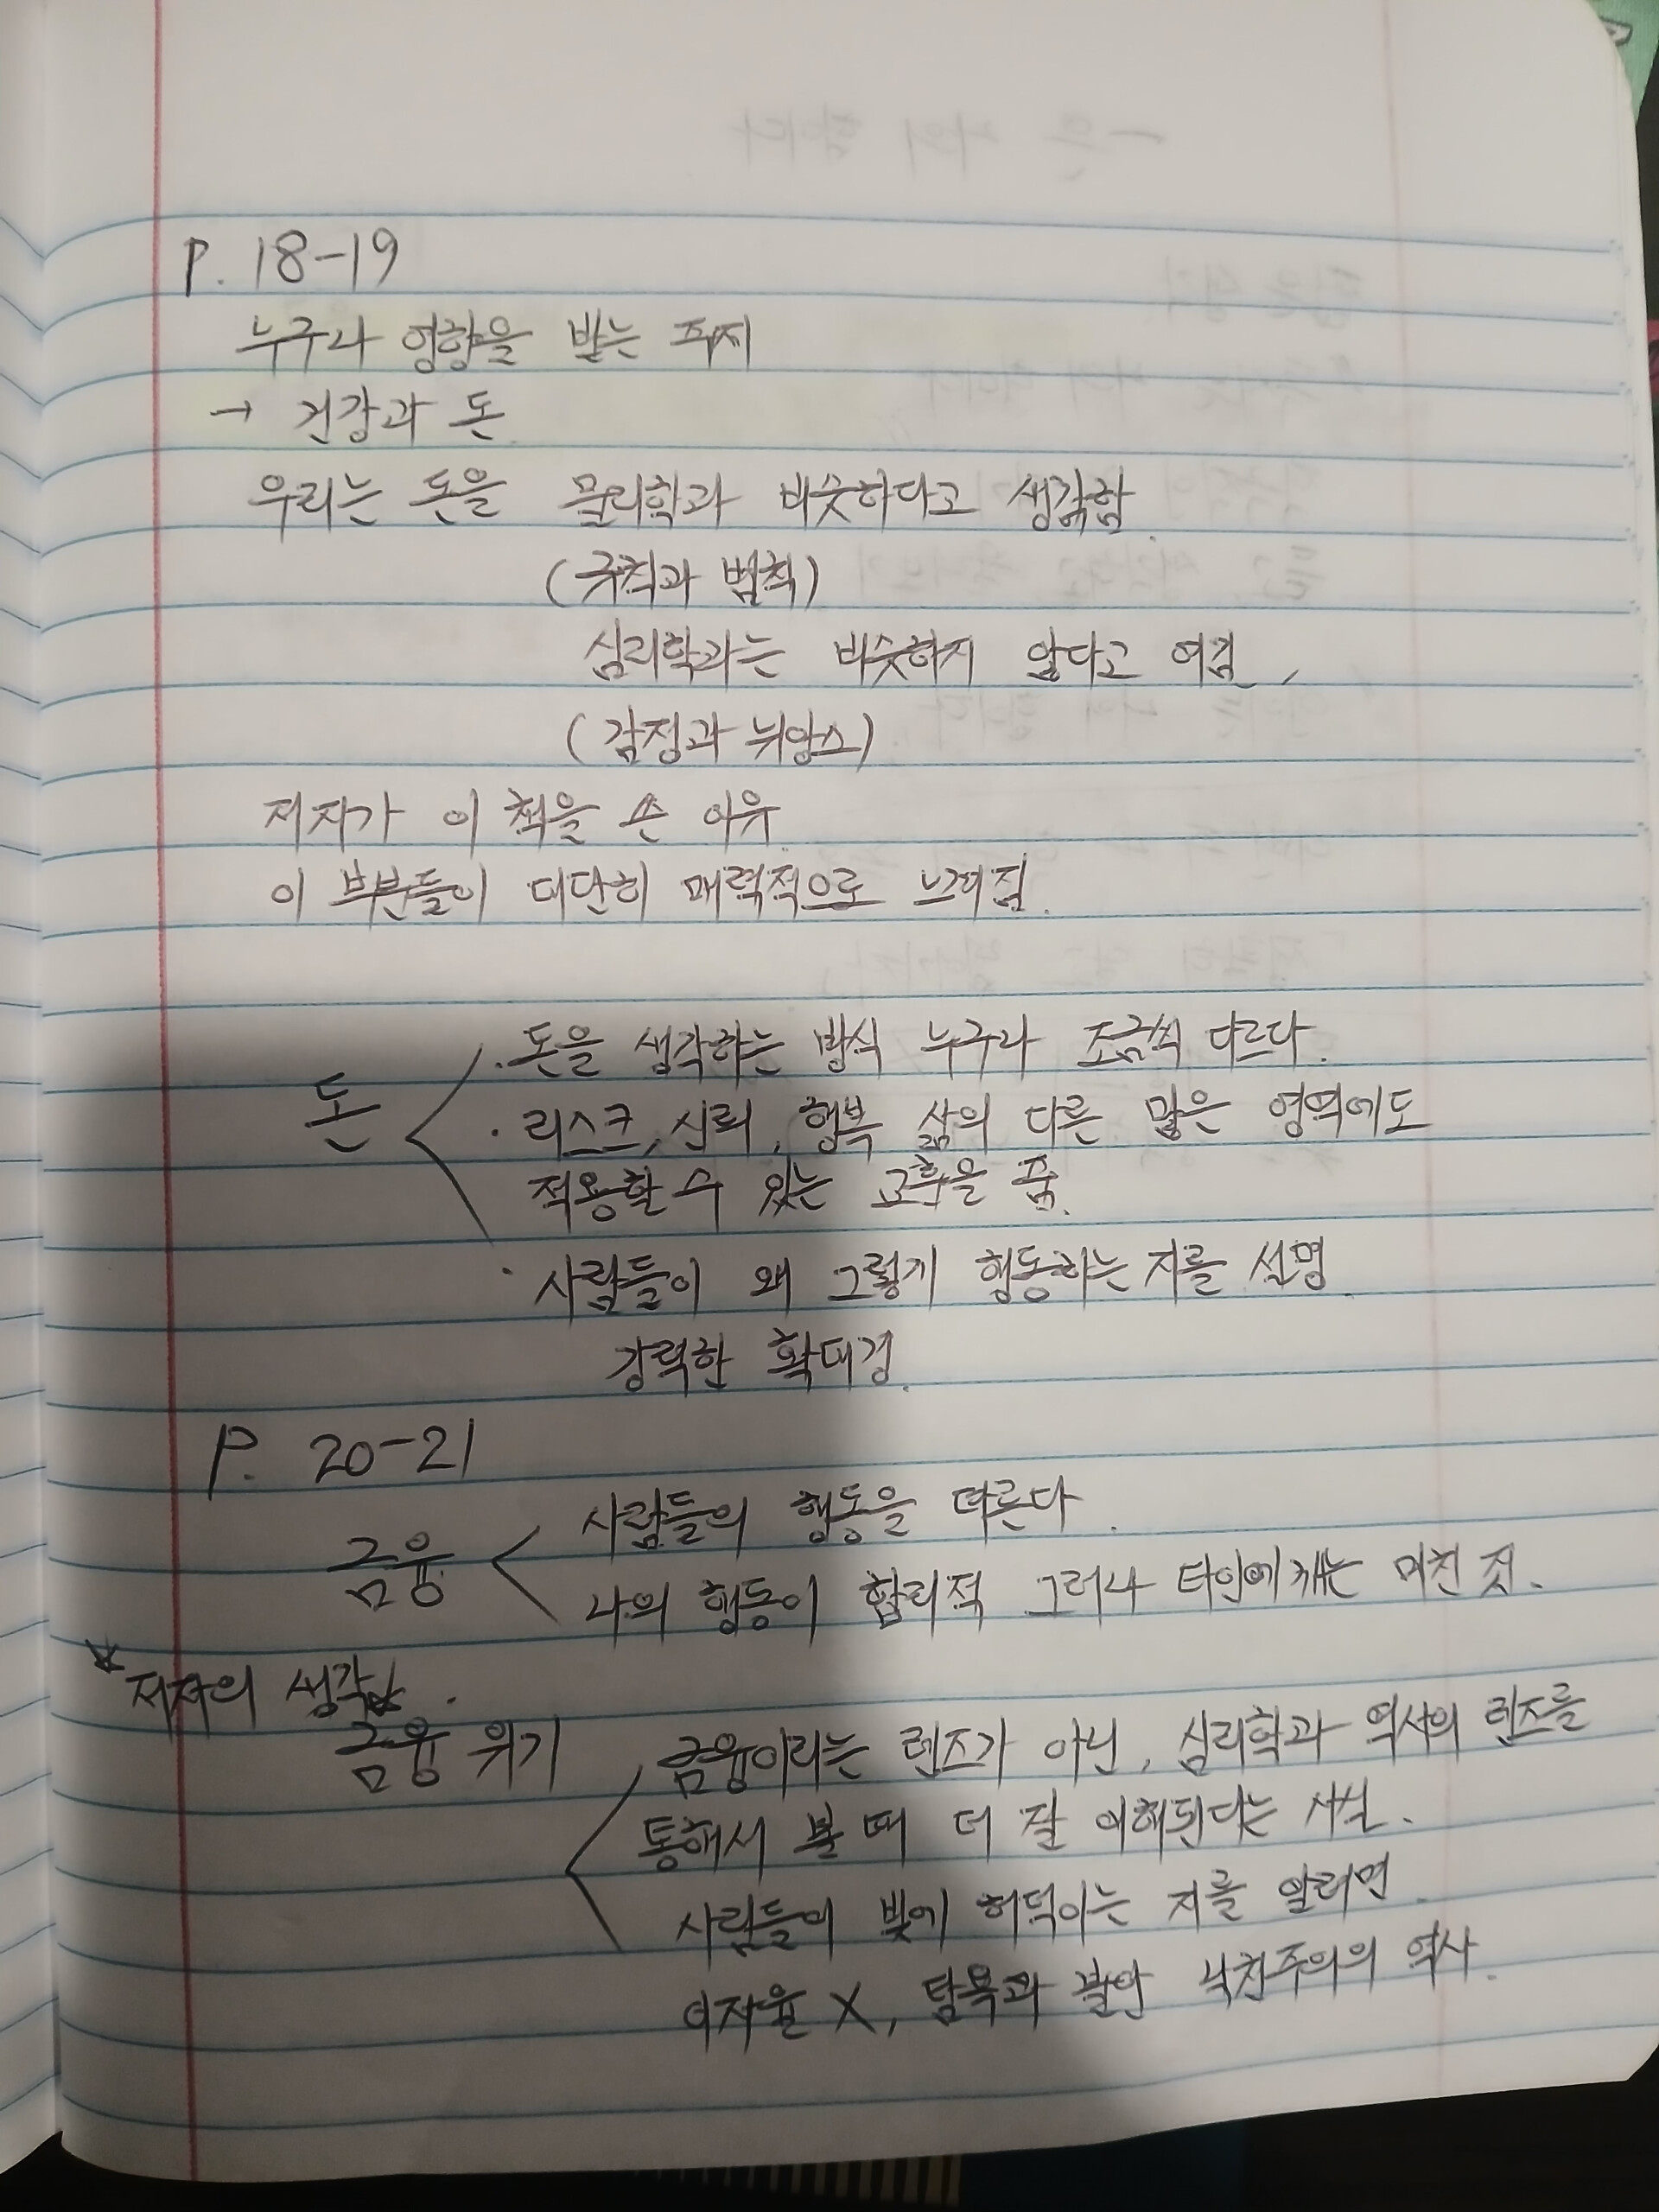 P. 18-19
누구나 영향을 받는 주제
→ 건강과 돈.
우리는 돈을 물리학과 비슷하다고 생각함.
(규칙과 법칙)
심리학과는 비슷하지 않다고 여김,
(감정과 뉘앙스)
저자가 이 책을 쓴 이유.
이 부분들이 대단히 매력적으로 느껴짐.
· 돈을 생각하는 방식 누구나 조금씩 다르다.
돈
· 리스크, 신뢰, 행복 삶의 다른 많은 영역에도
적용할 수 있는 교훈을 줌.
· 사람들이 왜 그렇게 행동하는 지를 설명
강력한 확대경.
P. 20-21
사람들의 행동을 따른다.
금융
나의 행동이 합리적 그러나 타인에게는 미친 짓.
저자의 생각.
금융 위기 금융이라는 렌즈가 아닌, 심리학과 역사의 렌즈를
통해서 볼 때 더 잘 이해된다는 사실.
사람들이 빚에 허덕이는 지를 알려면.
이자율 X, 탐욕과 불안 낙천주의의 역사.